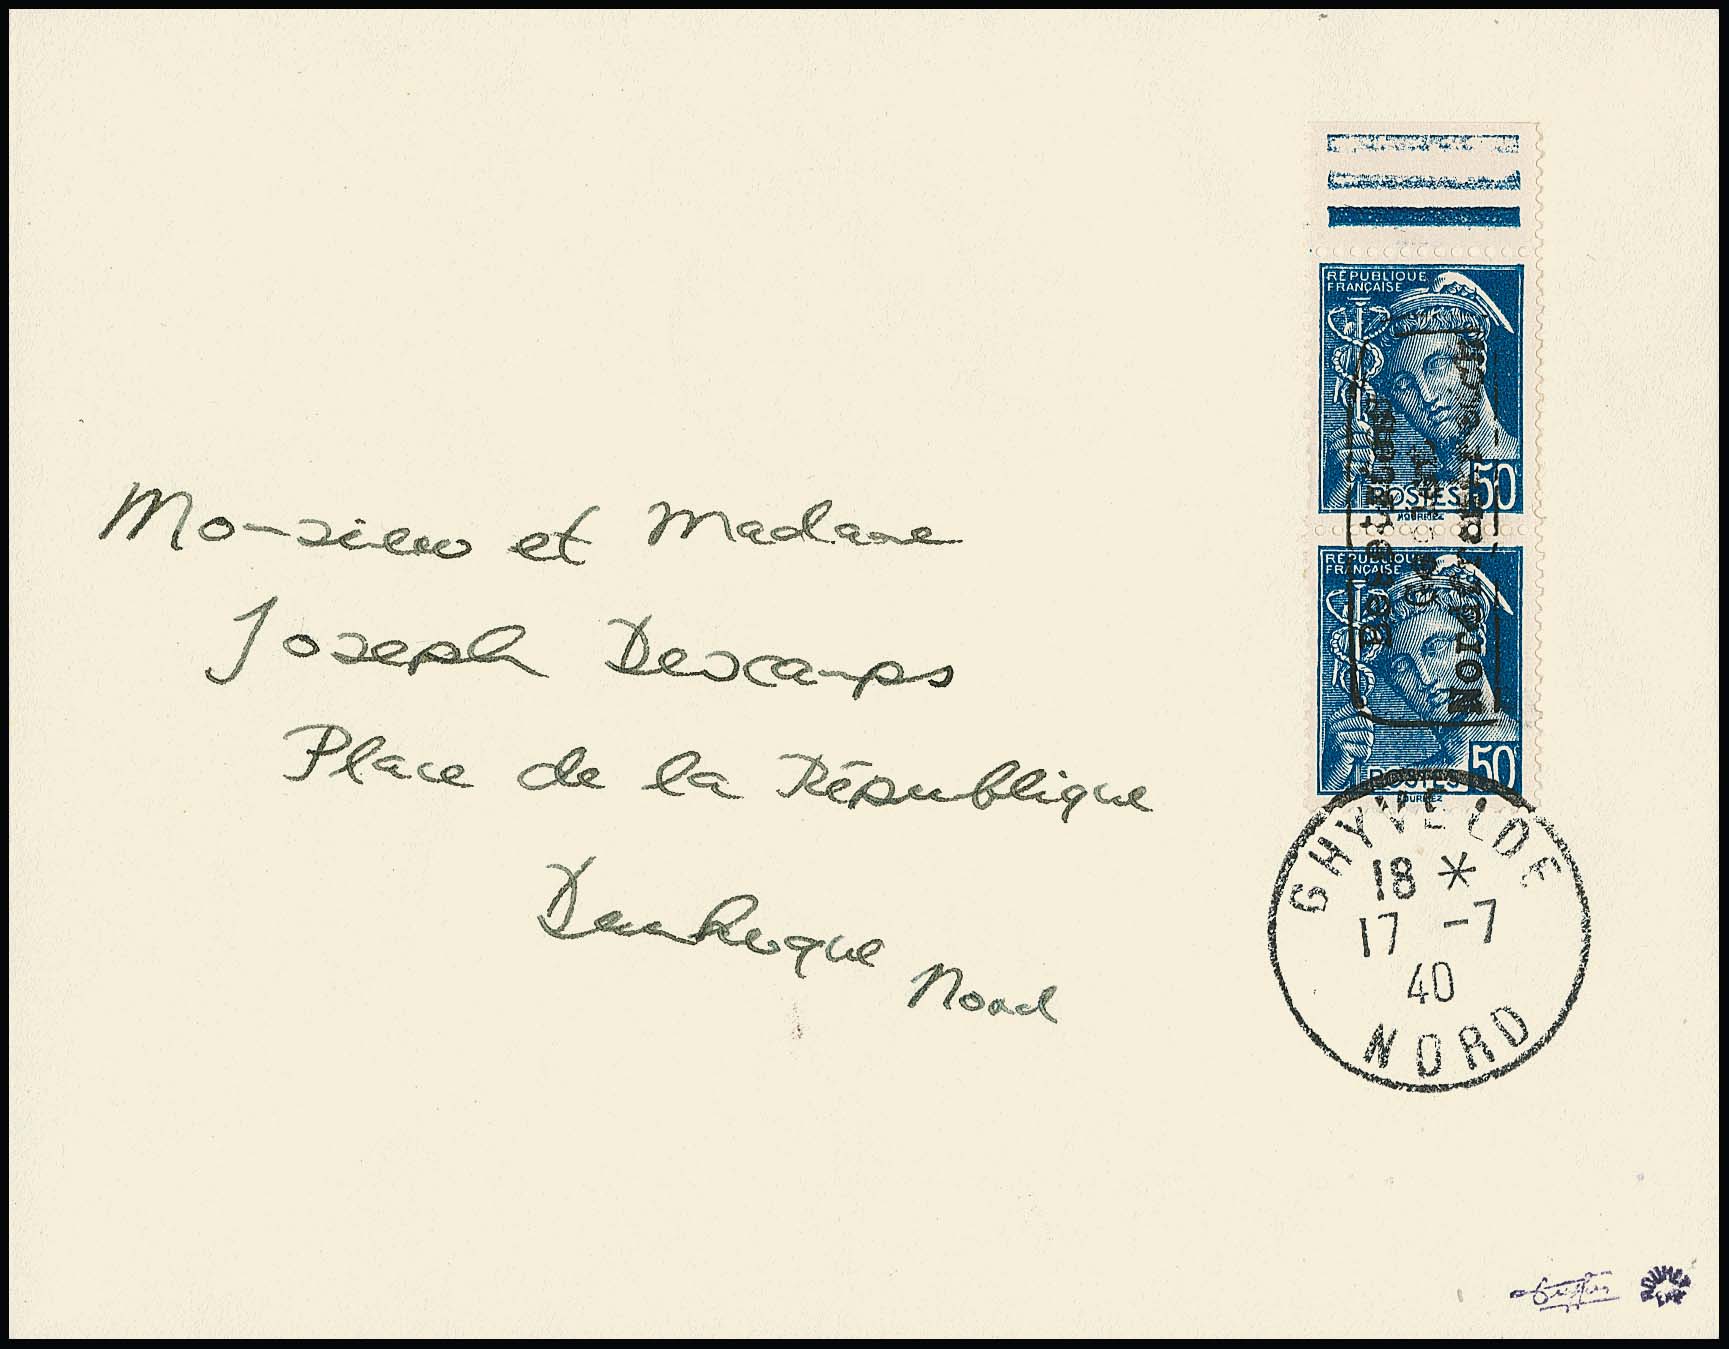 Monsieur et Madame
Joseph Descamps
Place de la République
Dunkerque Nord
RÉPUBLIQUE
FRANÇAISE
POSTES 50
RÉPUBLIQUE
FRANÇAISE
POSTES 50
Besetztes
Gebiet
Nordfrankreich
GHYVELDE
18 *
17 -7
40
NORD
ROUMET